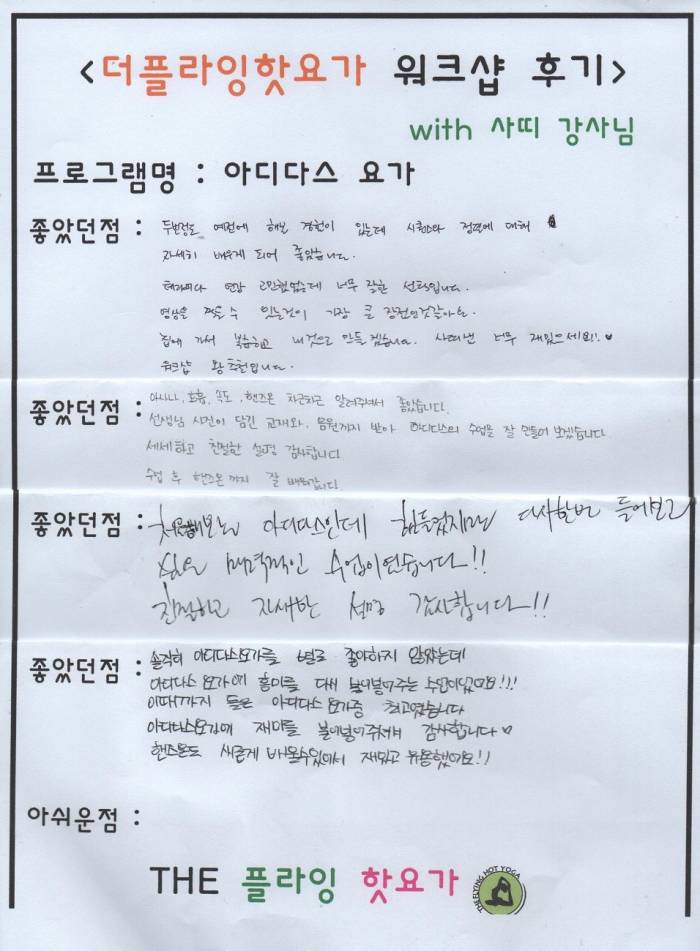 <더플라잉핫요가 워크샵 후기>
with 사띠 강사님
프로그램명 : 아디다스 요가
좋았던점 : 두번정도 예전에 해본 경험이 있는데 시퀀스와 정렬에 대해
자세히 배우게 되어 좋았습니다.
고민했었는데 너무 잘한 선택입니다.
영상을 찍을 수 있는것이 가장 큰 장점인것같아요.
집에 가서 복습하고 내것으로 만들겠습니다. 사띠쌤 너무 재밌으세요!! ♥
워크샵 왕추천입니다.
좋았던점 : 아사나, 호흡, 속도, 핸즈온 차근차근 알려주셔서 좋았습니다.
선생님 사진이 담긴 교재와, 음원까지 받아 아디다스의 수업을 잘 만들어 보겠습니다
세세하고 친절한 설명 감사합니다
수업 후 핸즈온까지 잘 배워갑니다.
좋았던점 : 처음해보는 아디다스인데 힘들었지만 다시한번 들어보고
싶은 매력적인 수업이였습니다!!
친절하고 자세한 설명 감사합니다!!
좋았던점 : 솔직히 아디다스요가를 별로 좋아하지 않았는데
아디다스 요가에 흥미를 다시 불어넣어주는 수업이었어요!!!
이때까지 들은 아디다스 요가중 최고였습니다
아디다스요가에 재미를 불어넣어주셔서 감사합니다♡
핸즈온도 새롭게 배울수있어서 재밌고 유용했어요!!
아쉬운점 :
THE 플라잉 핫요가
THE FLYING HOT YOGA